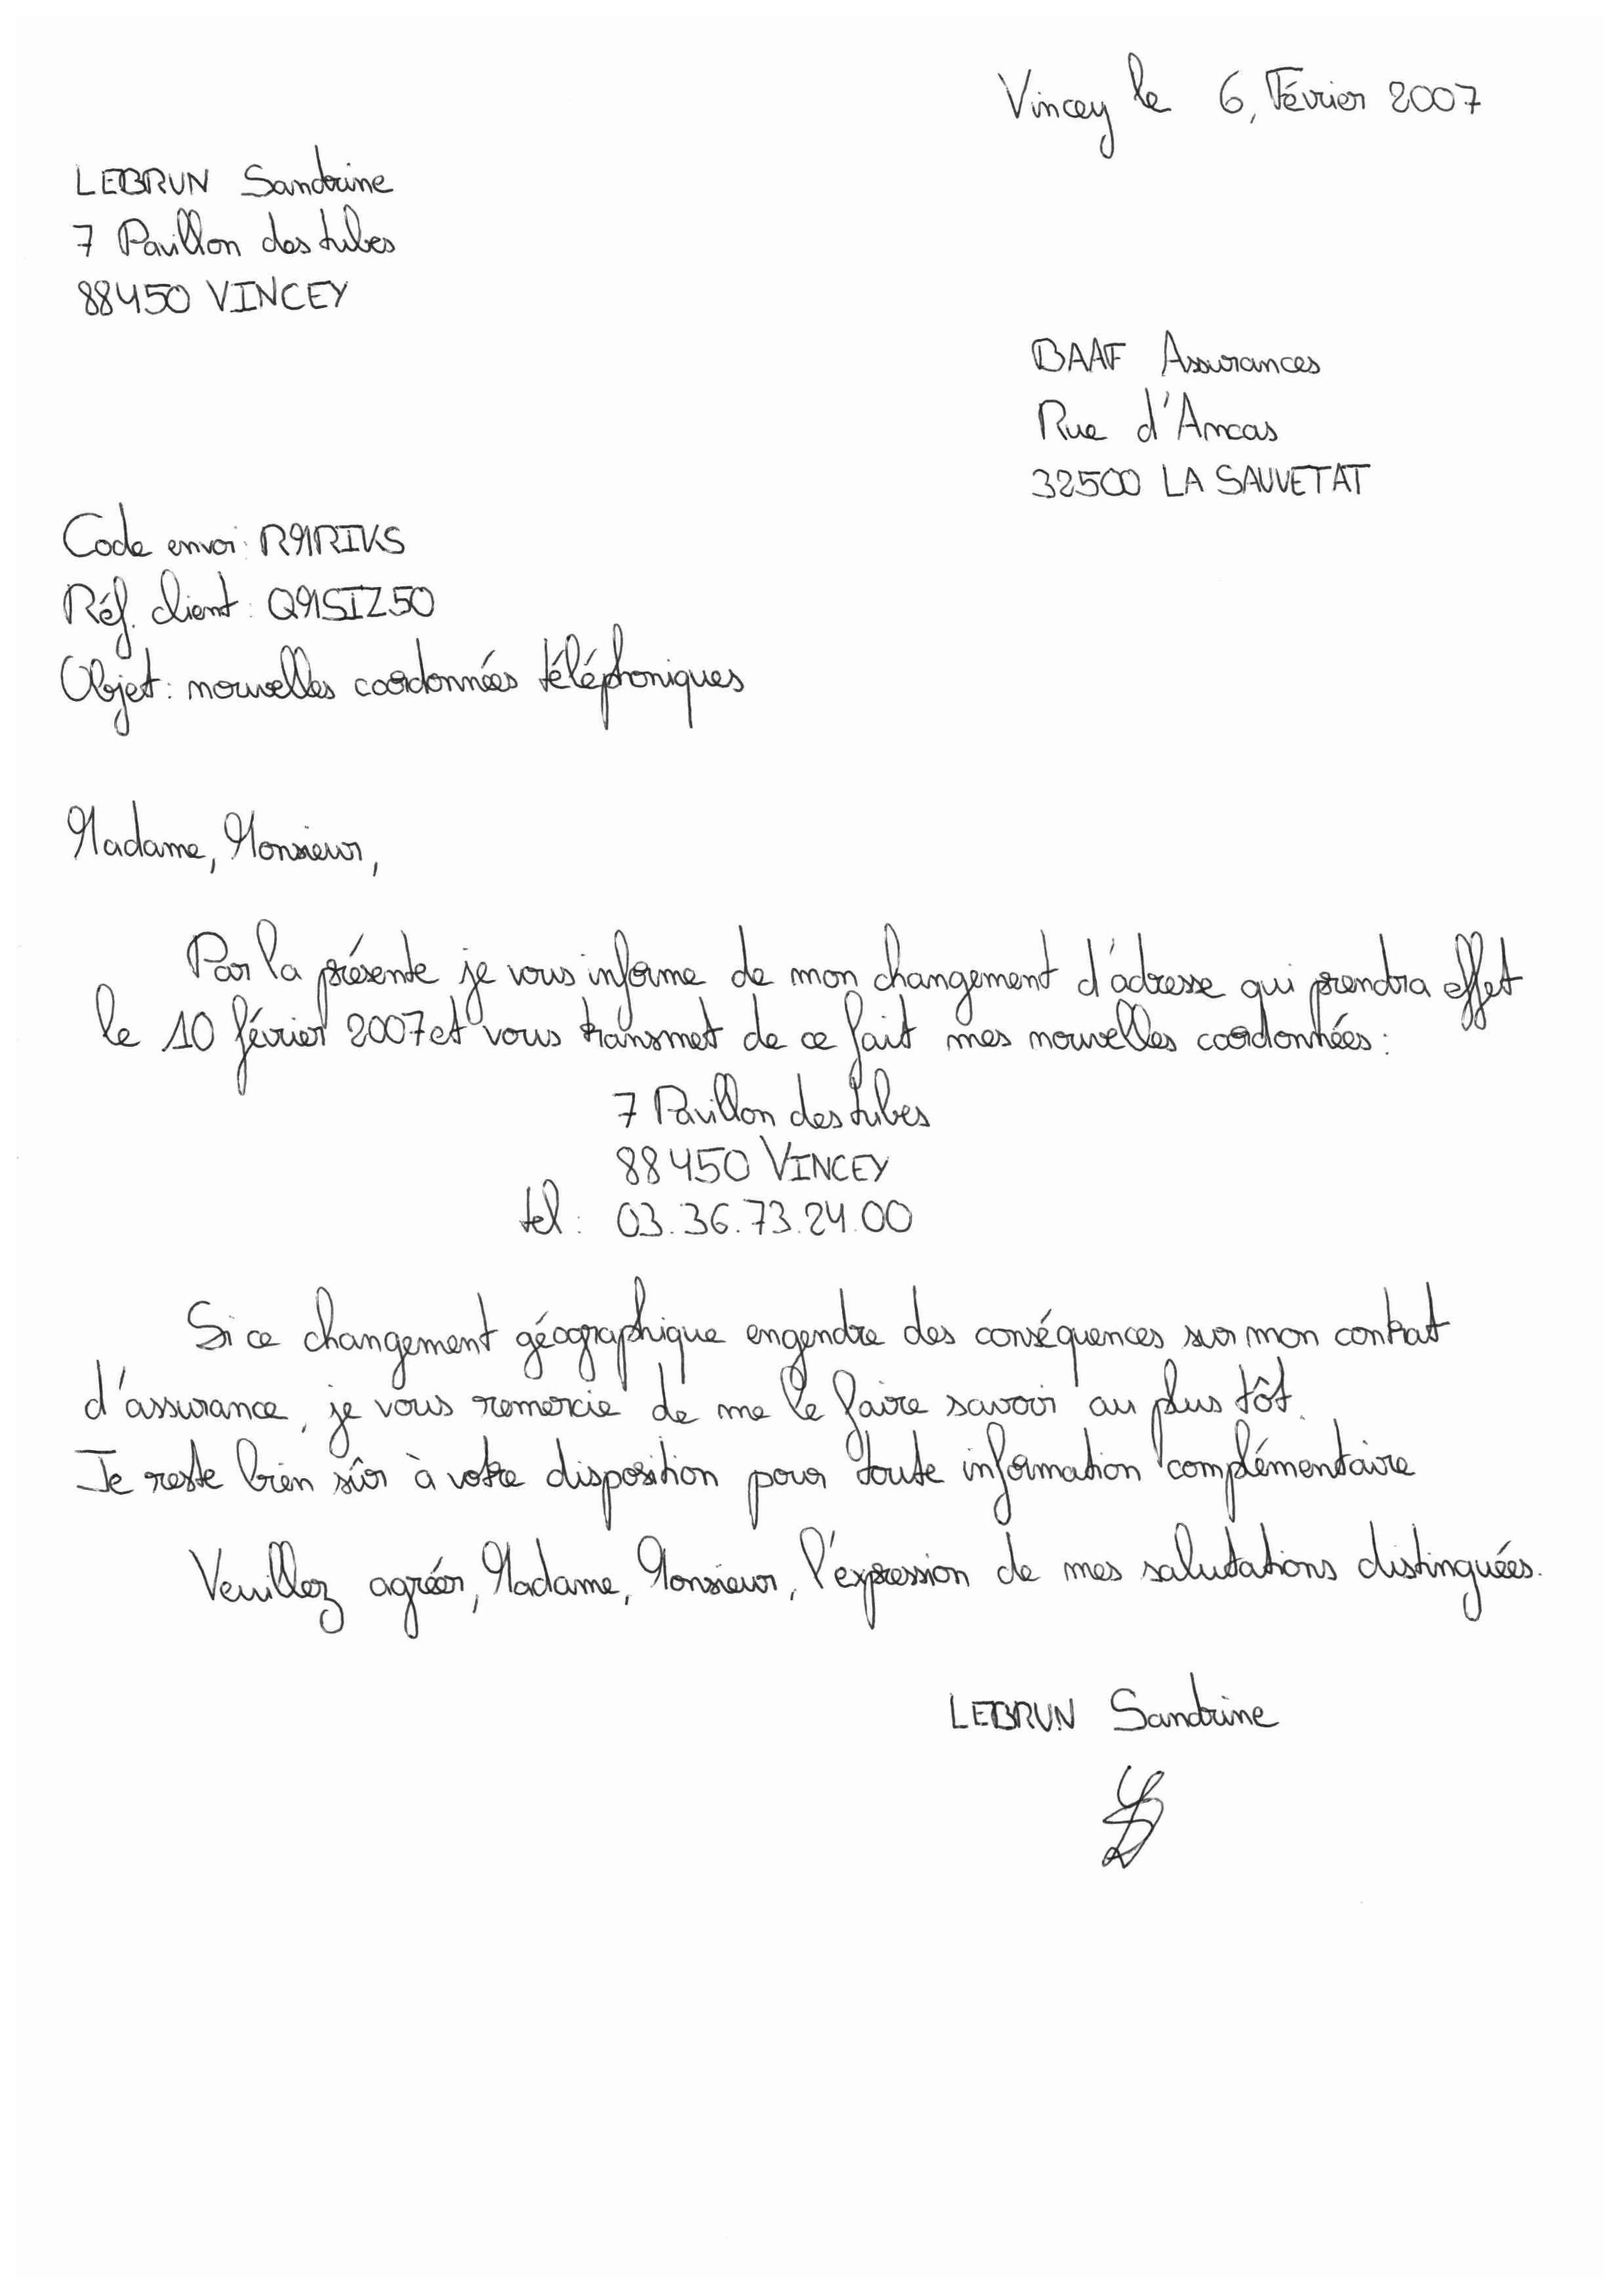 Vincey le 6, Février 2007
LEBRUN Sandrine
7 Pavillon des tubes
88450 VINCEY
BAAF Assurances
Rue d'Ancas
32500 LA SAUVETAT
Code envoi : R91RIKS
Réf. client : Q91SIZ50
Objet : nouvelles coordonnées téléphoniques
Madame, Monsieur,
Par la présente je vous informe de mon changement d'adresse qui prendra effet
le 10 février 2007 et vous transmet de ce fait mes nouvelles coordonnées :
7 Pavillon des tubes
88450 VINCEY
tel : 03.36.73.24.00
Si ce changement géographique engendre des conséquences sur mon contrat
d'assurance, je vous remercie de me le faire savoir au plus tôt.
Je reste bien sûr à votre disposition pour toute information complémentaire
Veuillez agréer, Madame, Monsieur, l'expression de mes salutations distinguées.
LEBRUN Sandrine